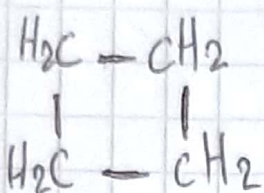 H2C - CH2
| |
H2C - CH2